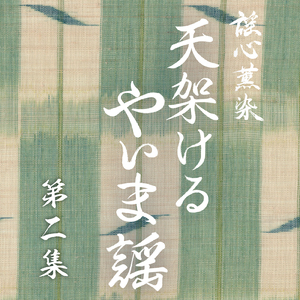 謡心薫染
天架ける
やいま謡
第二集